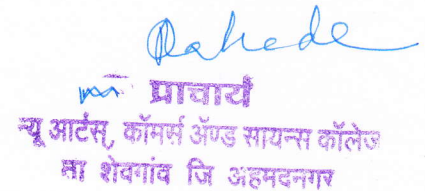 प्राचार्य
न्यू आर्टस्, कॉमर्स ॲण्ड सायन्स कॉलेज
ता शेवगांव जि अहमदनगर